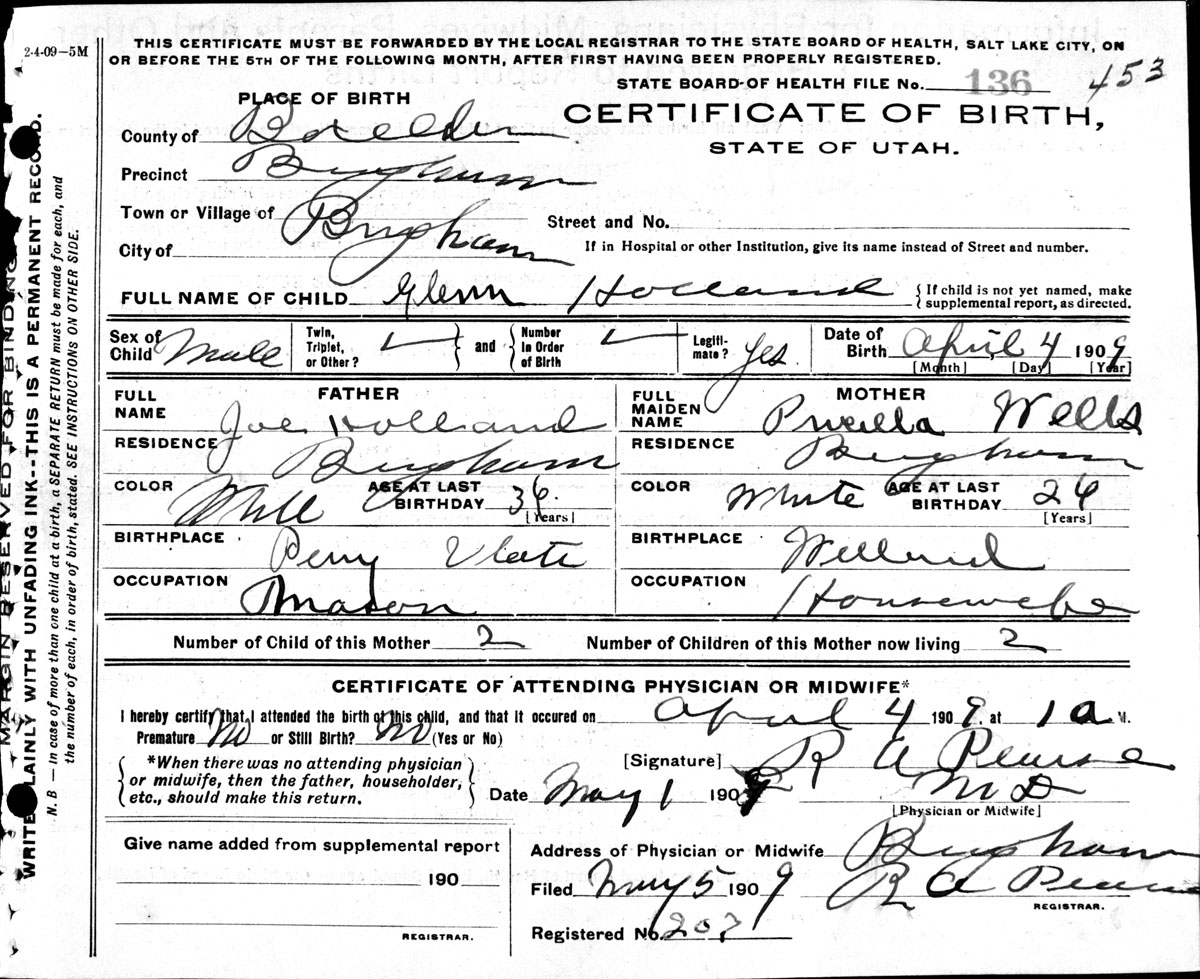 2-4-09-5M
THIS CERTIFICATE MUST BE FORWARDED BY THE LOCAL REGISTRAR TO THE STATE BOARD OF HEALTH, SALT LAKE CITY, ON
OR BEFORE THE 5TH OF THE FOLLOWING MONTH, AFTER FIRST HAVING BEEN PROPERLY REGISTERED.
STATE BOARD OF HEALTH FILE No. 136 453
PLACE OF BIRTH
CERTIFICATE OF BIRTH,
STATE OF UTAH.
County of Box Elder
Precinct Brigham
Town or Village of
City of Brigham
Street and No.
If in Hospital or other Institution, give its name instead of Street and number.
FULL NAME OF CHILD Glenn Holland
{If child is not yet named, make
supplemental report, as directed.
Sex of Child Male
Twin, Triplet, or Other?
} and {
Number in Order of Birth
Legiti- mate? Yes
Date of Birth April 4 1909
[Month] [Day] [Year]
FATHER
FULL NAME Joe Holland
RESIDENCE Brigham
COLOR White
AGE AT LAST BIRTHDAY
[Years]
BIRTHPLACE Perry Utah
OCCUPATION Mason
MOTHER
FULL MAIDEN NAME Wells
RESIDENCE Brigham
COLOR White
AGE AT LAST BIRTHDAY
[Years]
BIRTHPLACE Willard
OCCUPATION Housewife
Number of Child of this Mother 2
Number of Children of this Mother now living 2
CERTIFICATE OF ATTENDING PHYSICIAN OR MIDWIFE*
I hereby certify that I attended the birth of this child, and that it occured on April 4 1909. at 1 a M.
Premature No or Still Birth? No (Yes or No)
{*When there was no attending physician
or midwife, then the father, householder,
etc., should make this return.}
[Signature] R A Pearse
M D
[Physician or Midwife]
Date May 1 1909
Give name added from supplemental report
190
REGISTRAR.
Address of Physician or Midwife Brigham
Filed May 5 1909 R A Pearse
REGISTRAR.
Registered No. 207
MARGIN RESERVED FOR BINDING
WRITE PLAINLY WITH UNFADING INK--THIS IS A PERMANENT RECORD.
N. B — In case of more than one child at a birth, a SEPARATE RETURN must be made for each, and
the number of each, in order of birth, stated. SEE INSTRUCTIONS ON OTHER SIDE.